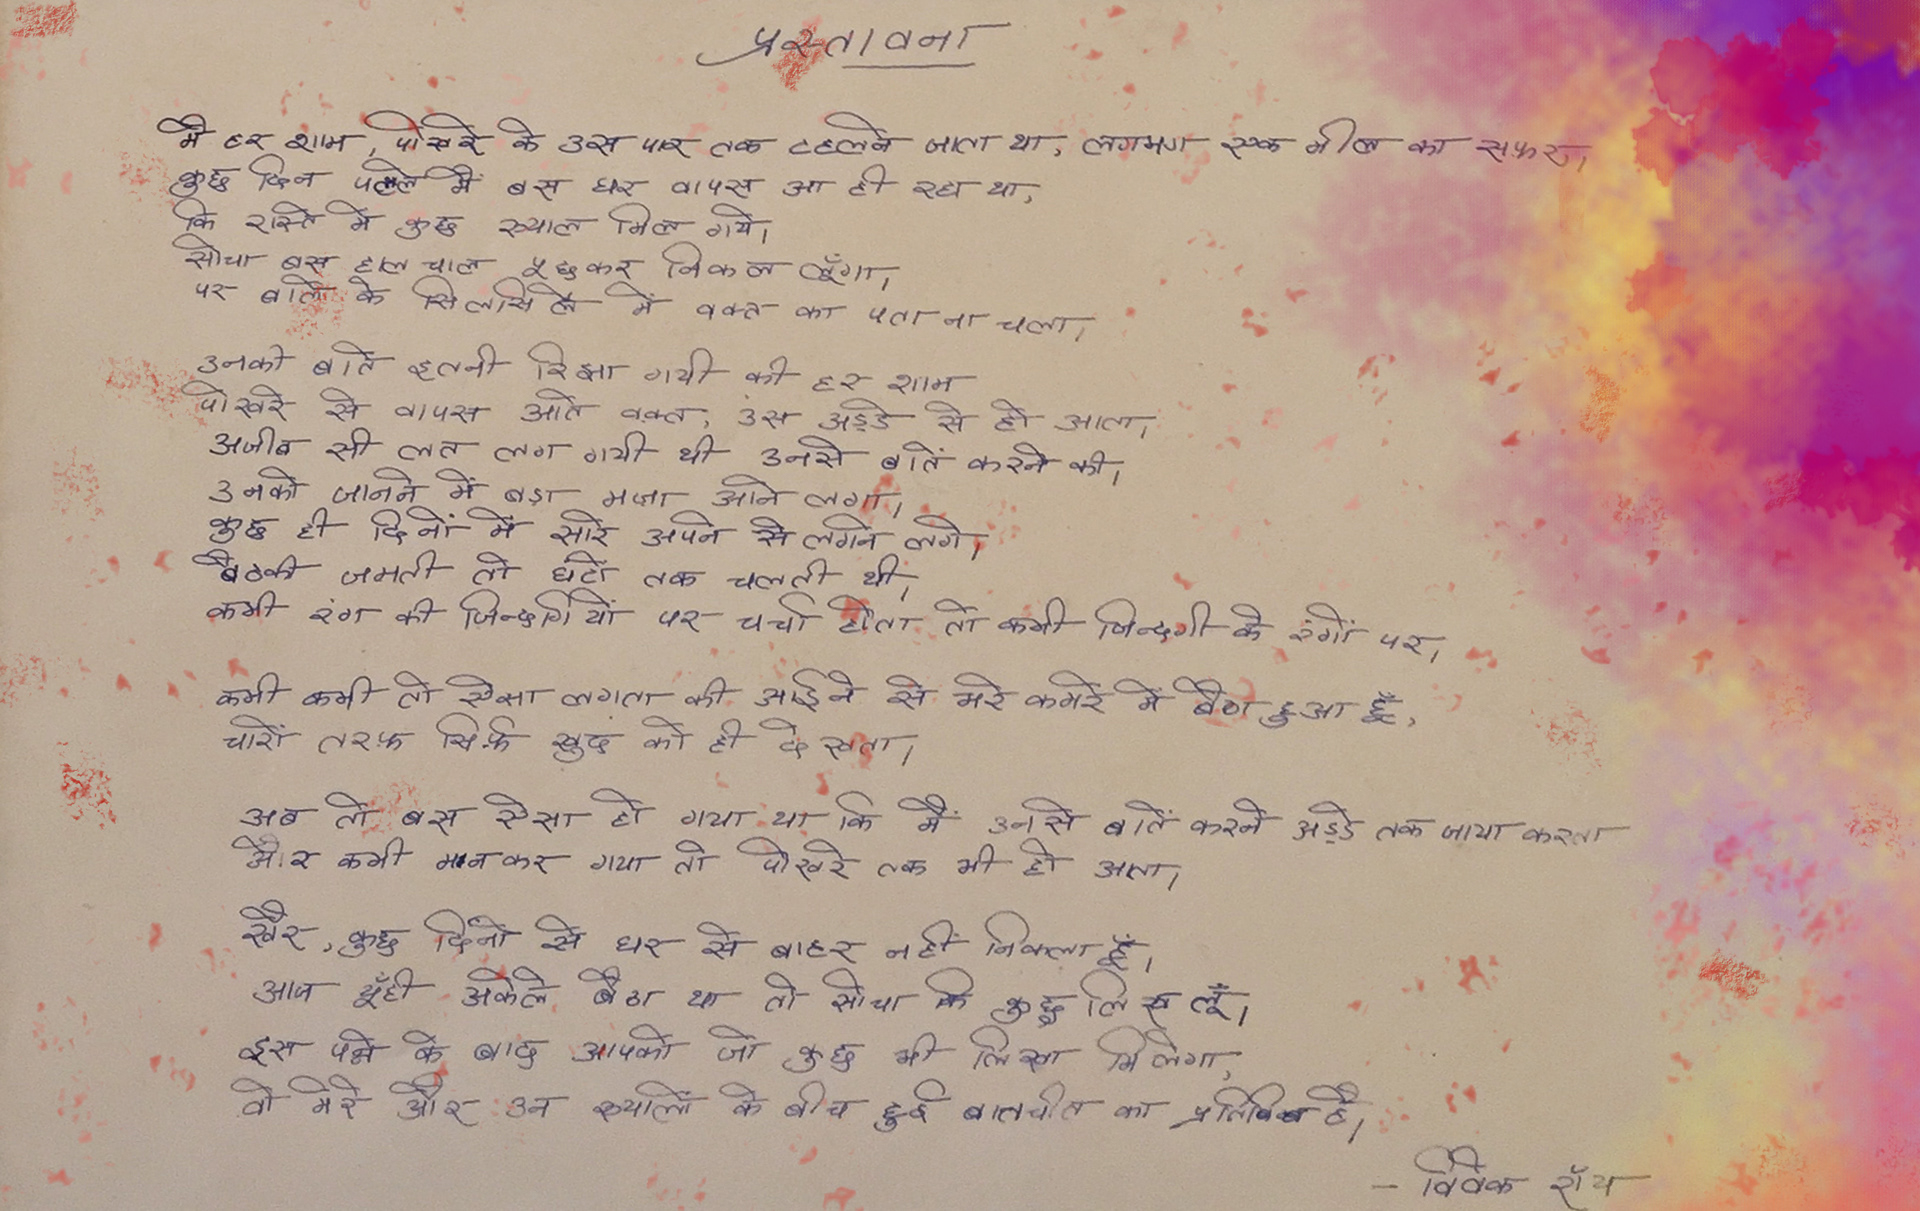 प्रस्तावना
मैं हर शाम, पोखरे के उस पार तक टहलने जाता था, लगभग एक मील का सफ़र,
कुछ दिन पहले मैं बस घर वापस आ ही रहा था,
कि रास्ते में कुछ ख्याल मिल गये,
सोचा बस हाल चाल पूछकर निकल लूँगा,
पर बातों के सिलसिले में वक्त का पता ना चला,
उनकी बातें इतनी रिझा गयी की हर शाम
पोखरे से वापस आते वक़्त, उस अड्डे से हो आता,
अजीब सी लत लग गयी थी उनसे बातें करने की,
उनको जानने में बड़ा मजा आने लगा,
कुछ ही दिनों में सारे अपने से लगने लगे,
बैठकी जमती तो घंटों तक चलती थी,
कभी रंग की जिन्दगियों पर चर्चा होता तो कभी जिन्दगी के रंगों पर,
कभी कभी तो ऐसा लगता की आईने से भरे कमरे में बैठा हुआ हूँ,
चारों तरफ़ सिर्फ़ खुद को ही देखता,
अब तो बस ऐसा हो गया था कि मैं उनसे बातें करने अड्डे तक जाया करता
और कभी मन कर गया तो पोखरे तक भी हो आता,
खैर, कुछ दिनों से घर से बाहर नहीं निकला हूँ,
आज यूँही अकेले बैठा था तो सोचा कि कुछ लिख लूँ,
इस पन्ने के बाद आपको जो कुछ भी लिखा मिलेगा,
वो मेरे और उन ख्यालों के बीच हुई बातचीत का प्रतिबिम्ब है,
- विवेक रॉय